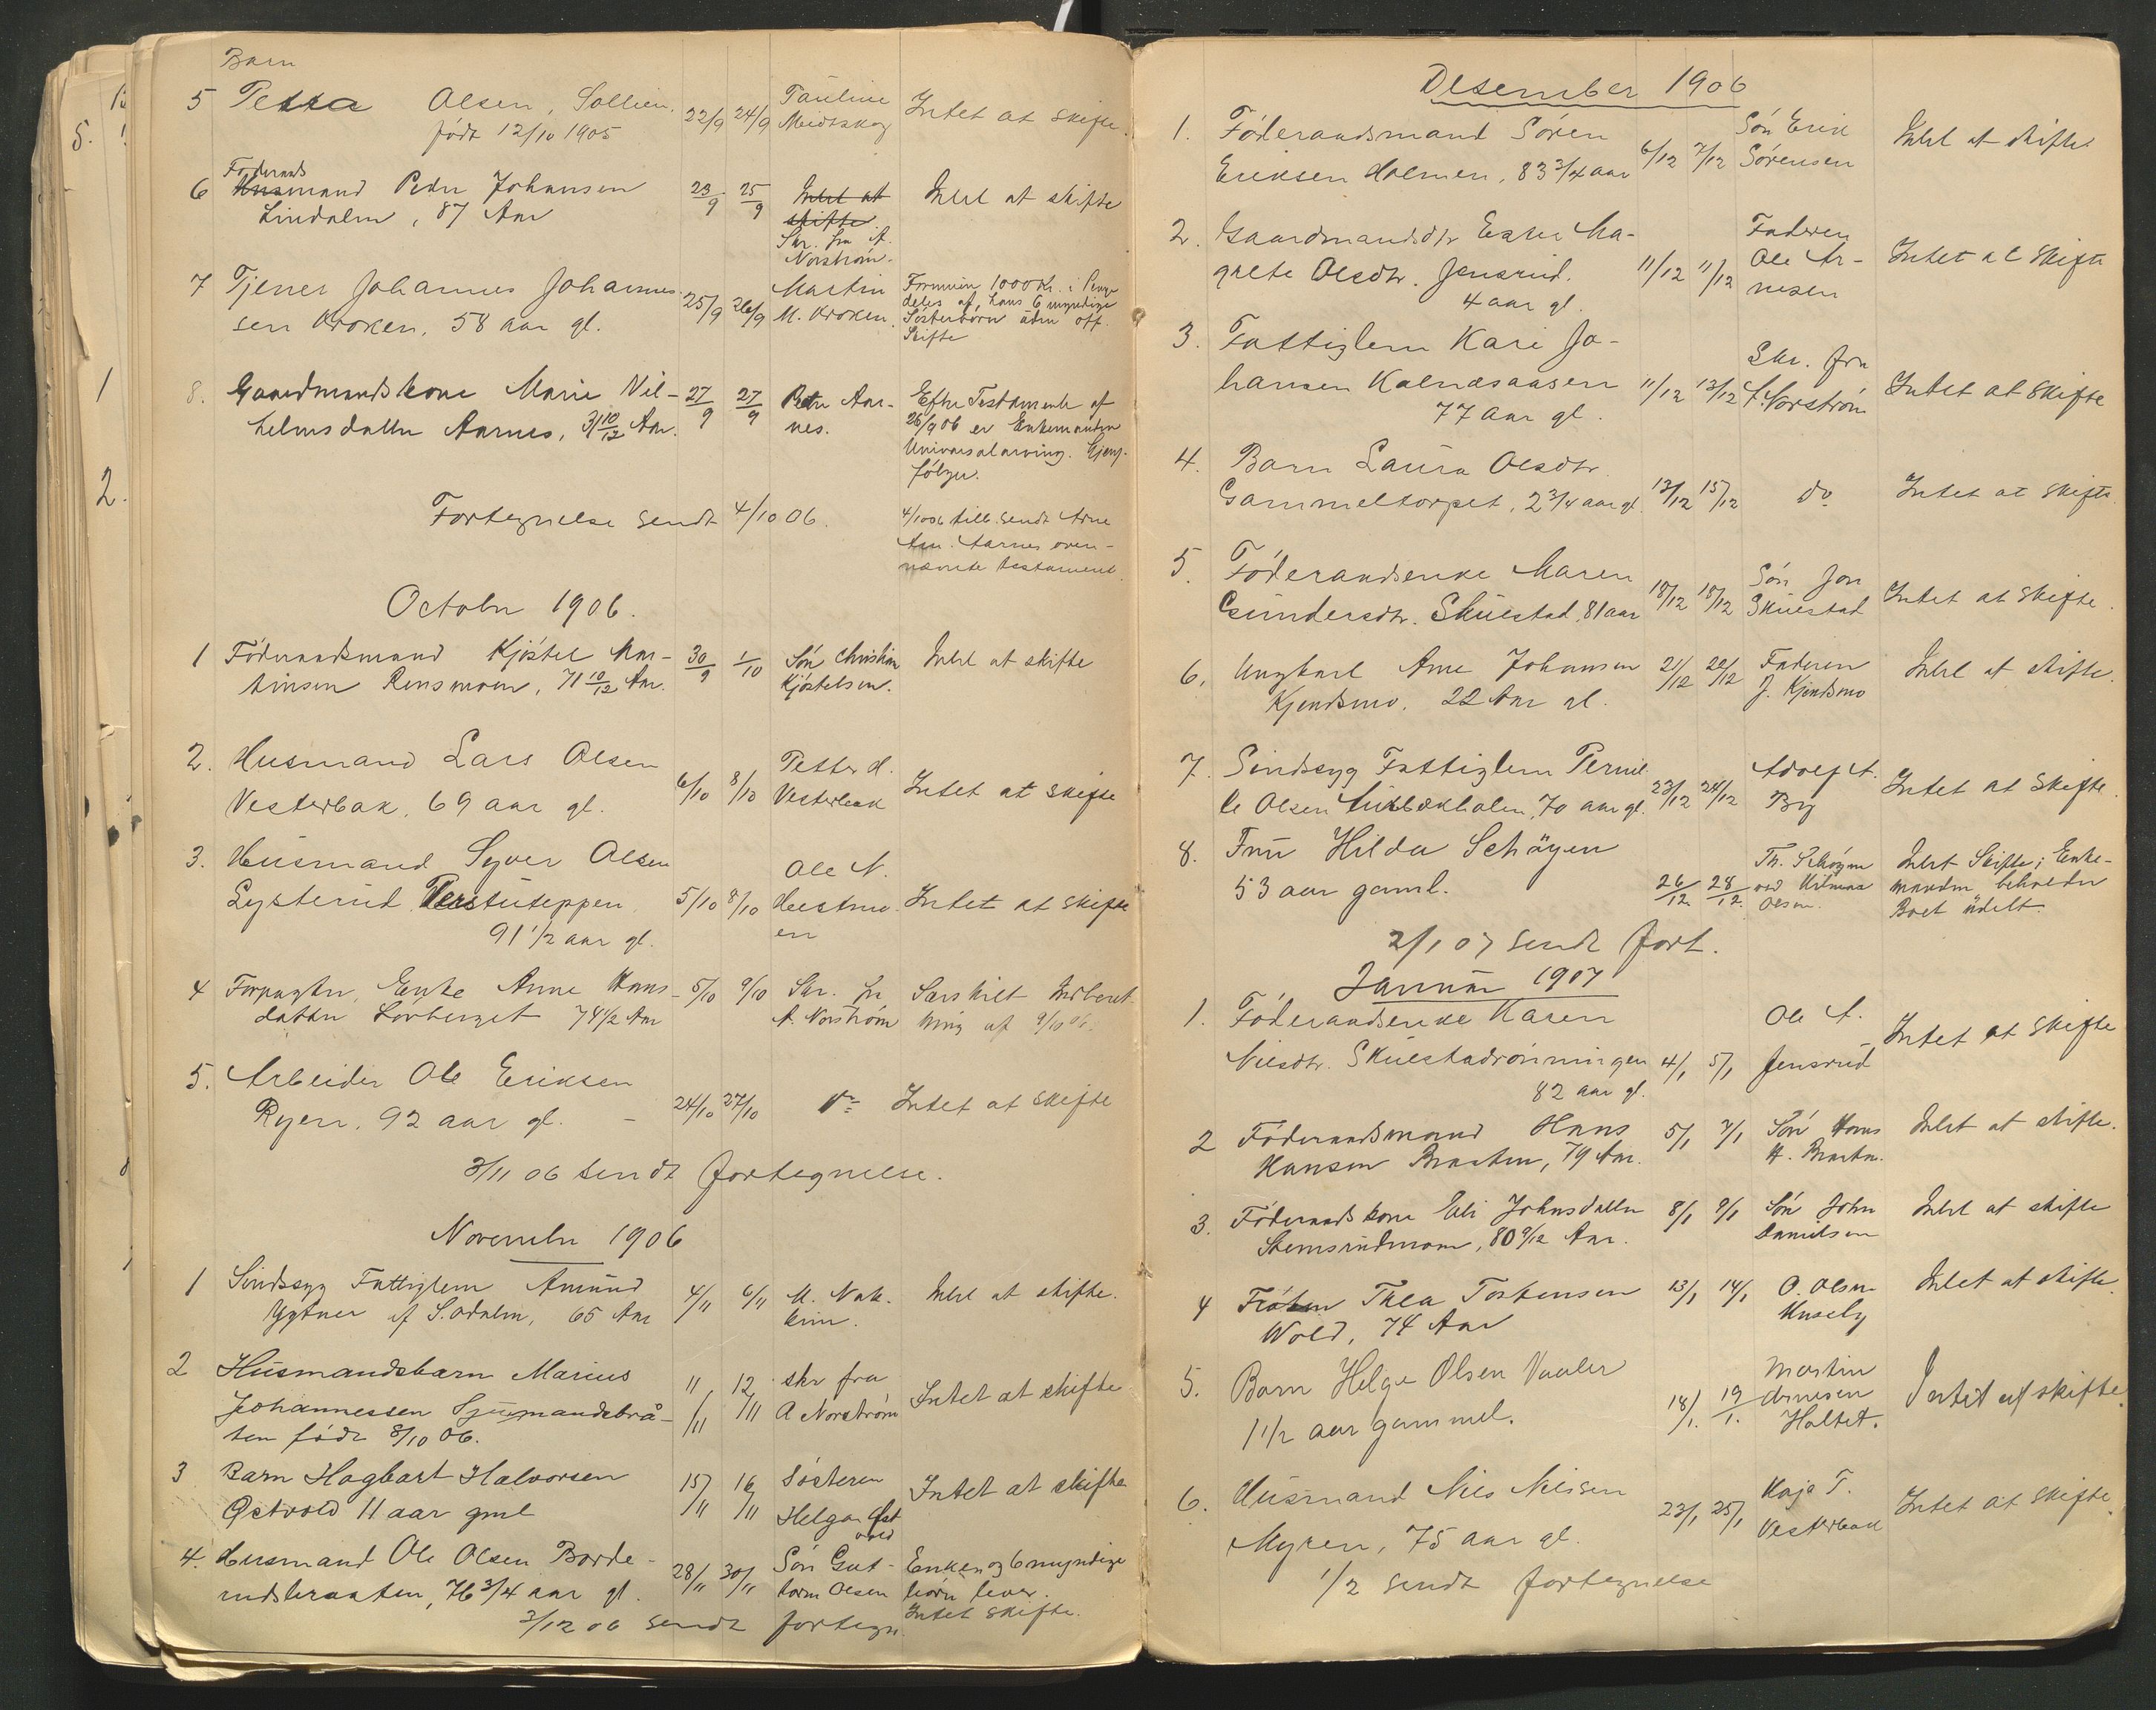 Barn
5 Petra Olsen, Sollien, 22/9 24/9 Pauline Intet at skifte.
født 12/10 1905 Meidtskog
Føderaads
6 Husmand Peder Johansen 23/9 25/9 Intet at Intet at skifte
Lindalen, 87 Aar skifte
Skr. fra A.
Norstrøm.
7 Tjener Johannes Johannes- 25/9 26/9 Martin Formuen 1000 Kr. i Penge
sen Kroken, 58 aar gl. M. Kroken. deles af hans 6 myndige
Søsterbørn uden off.
Skifte
8. Gaardmandskone Marie Vil- 27/9 27/9 Peder Aar- Efter Testamente af
helmsdatter Aarnes, 31 10/12 Aar. nes. 26/9 06 er Enkemanden
Universalarving. Gjenp.
følger.
Fortegnelse sendt 4/10 06. 4/10 06 tilb. sendt Arne
Am. Aarnes oven-
nævnte testament.
October 1906.
1 Føderaadsmand Kjøstel Mar- 30/9 1/10 Søn Christian Intet at skifte
tinsen Rensmoen, 71 10/12 Aar. Kjøstelsen.
2. Husmand Lars Olsen 6/10 8/10 Petter H. Intet at skifte
Vesterbak, 69 aar gl. Vesterbak
3. Husmand Syver Olsen Ole N.
Lysterud 5/10 8/10 Hestmo- Intet at skifte
91 1/2 aar gl. en
4 Forpagter Enke Anne Hans- 5/10 9/10 Skr. fra Særskilt Indberet-
datter Løvberget 74 1/2 Aar A. Norstrøm ning af 9/10 06.
5. Arbeider Ole Eriksen
Ryen, 92 aar gl. - 24/10 27/10 do Intet at skifte
3/11 06 sendt fortegnelse.
November 1906
1 Sindssyg Fattiglem Amund 4/11 6/11 M. Nak- Intet at skifte.
Ygtner af S. Odalen, 65 Aar kim.
2 Husmandsbarn Marius 11/11 12/11 skr fra Intet at skifte
Johannessen Sjumandsbrå- A Norstrøm
ten født 8/10 06.
3 Barn Hagbart Halvorsen 15/11 16/11 Søsteren Intet at skifte
Østvold 11 aar gml Helga Øst
vold
4. Husmand Ole Olsen Borde- 28/11 30/11 Søn Gut- Enken og 6 myndige
rudsbraaten, 76 3/4 aar gl. torm Olsen børn lever.
3/12 06 sendt fortegn. Intet skifte.
Desember 1906
1. Føderaadsmand Søren 6/12 7/12 Søn Erik Intet at skifte
Eriksen Holmen, 83 3/4 aar Sørensen
2. Gaardmandsdtr Ester Ma- Faderen
grete Olsdtr. Jensrud. 11/12 11/12 Ole Ar- Intet at skifte
4 aar gl. nesen
3. Fattiglem Kari Jo- Skr. fra
hansen Kalnæsaasen 11/12 13/12 A. Norstrøm Intet at skifte
77 aar gl.
4. Barn Laura Olsdtr.
Gammeltorpet, 2 3/4 aar gl. 13/12 15/12 do Intet at skifte.
5. Føderaadsenke Maren 18/12 18/12 Søn Jon Intet at skifte.
Gundersdtr. Skulstad, 81 aar Skulstad
6. Ungkarl Arne Johansen 21/12 22/12 Faderen Intet at skifte.
Kjendsmo, 22 Aar gl. J. Kjendsmo
7. Sindssyg Fattiglem Pernil- 23/12 24/12 Adolf A. Intet at skifte.
le Olsen 70 aar gl. Bry
8. Fru Hilda Schøyen Th. Schøyen Intet Skifte; Enke-
53 aar gaml. 26/12 28/12 ved Hilmar manden beholder
Olsen. Boet udelt.
2/1 07 sendt fort.
Januar 1907
1. Føderaadsenke Karen Ole A. Intet at skifte
Nilsdtr. Skulstadrønningen 4/1 5/1 Jensrud
82 aar gl.
2 Føderaadsmand Hans 5/1 7/1 Søn Hans Intet at skifte.
Hansen Braaten, 79 Aar. H. Braaten.
3. Føderaadskone Eli Johnsdatter 8/1 9/1 Søn John Intet at skifte
Stemsrudmoen, 80 9/12 Aar. Danielsen
4 Frøken Thea Torstensen 13/1 14/1 O. Olsen Intet at skifte.
Wold, 74 Aar Huseby
5. Barn Helge Olsen Vaaler 18/1. 19/1. Martin Intet at skifte.
1 1/2 aar gammel. Arnesen
Holtet.
6. Husmand Nils Nilsen 23/1 25/1 Kaja T. Intet at skifte.
Myren, 75 aar gl. Vesterbak
1/2 sendt fortegnelse